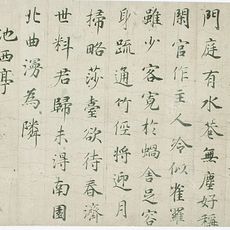 門庭有水巷無塵好稱
閑官作主人冷似雀羅
雖少客寬於蝸舍足容
身疏通竹徑將迎月
掃略莎臺欲待春濟
世料君歸未得南園
北曲謾為隣
池西亭